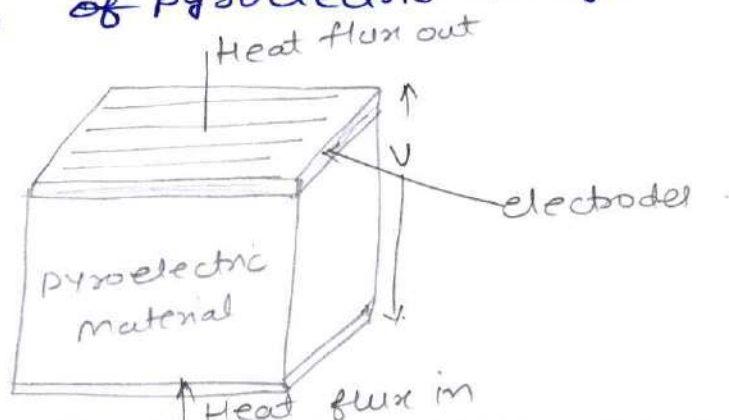 of pyroelectric
Heat flux out
V
electrodes
pyroelectric
Material
Heat flux in